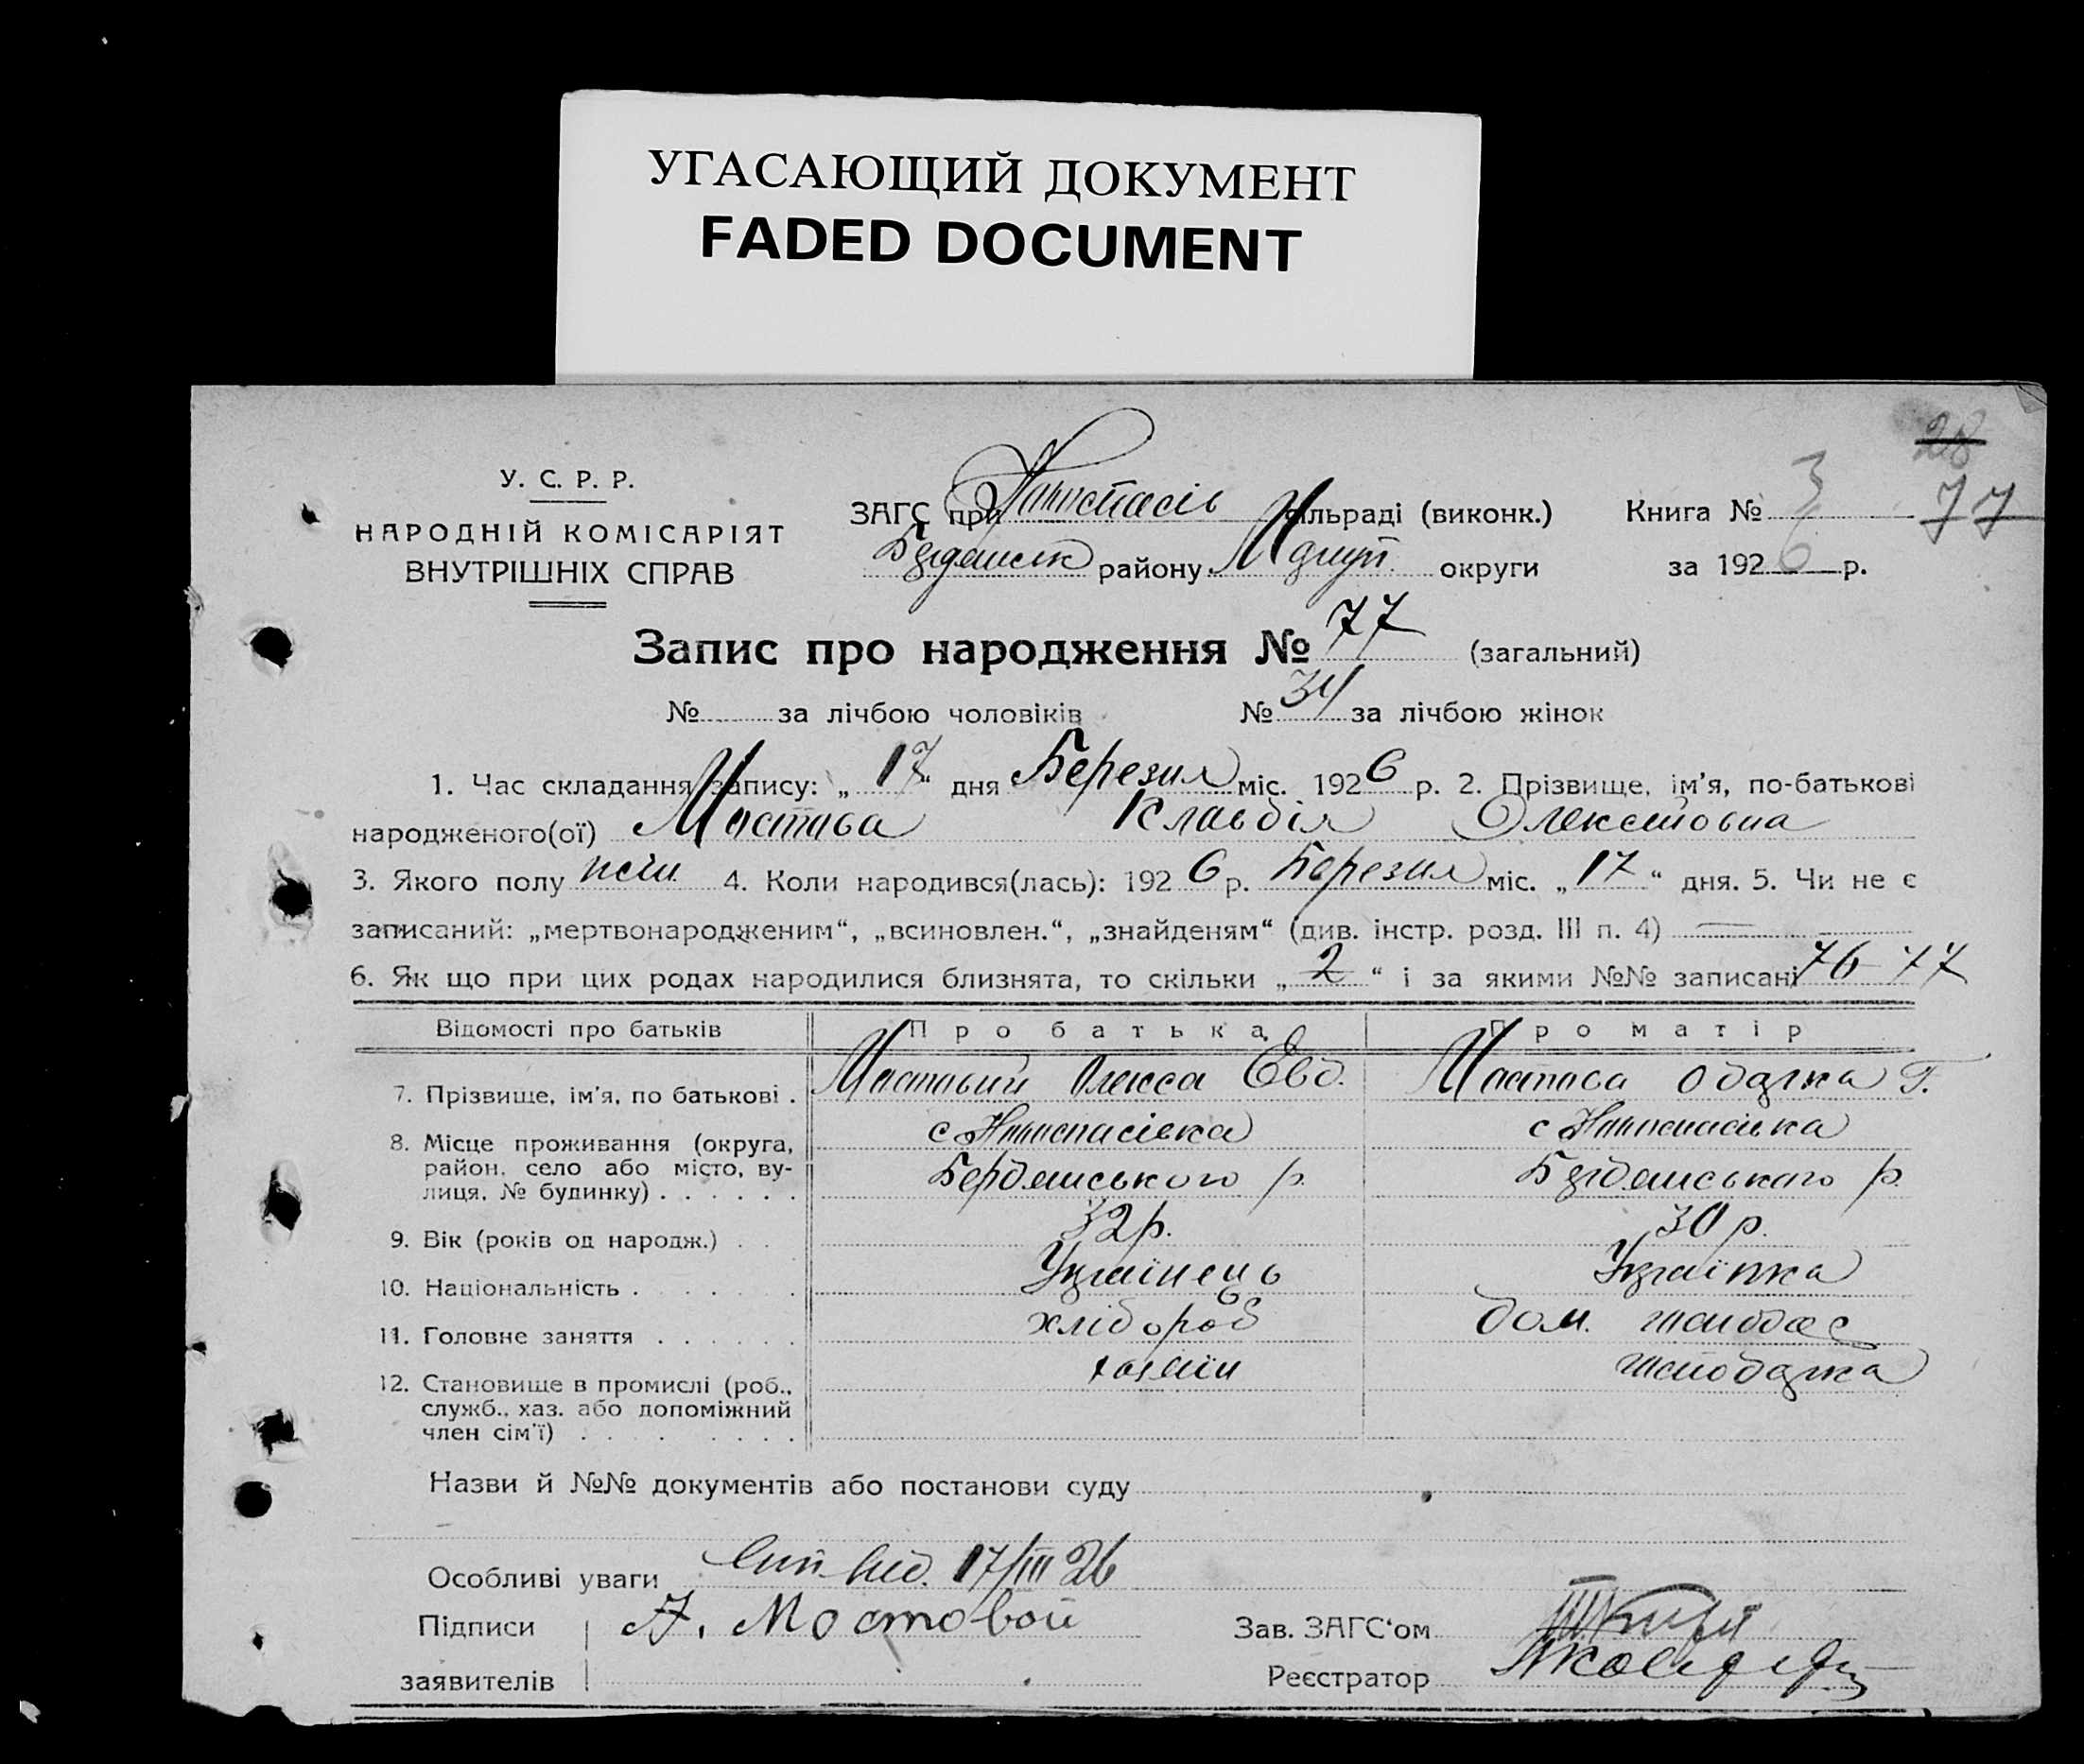 УГАСАЮЩИЙ ДОКУМЕНТ
FADED DOCUMENT
28
У. С. Р. Р.
НАРОДНІЙ КОМІСАРІЯТ
ВНУТРІШНІХ СПРАВ
ЗАГС при сільраді (виконк.)
району округи
Книга № 3 77
за 1926 р.
Запис про народження № 77 (загальний)
№ за лічбою чоловіків № 34 за лічбою жінок
1. Час складання запису: „ 17 “ дня Березня міс. 1926 р. 2. Прізвище, ім'я, по-батькові
народженого(ої) Мостова Клавдія
3. Якого полу жін. 4. Коли народився(лась): 1926 р. Березня міс. „ 17 “ дня. 5. Чи не є
записаний: „мертвонародженим“, „всиновлен.“, „знайденям“ (див. інстр. розд. III п. 4) —
6. Як що при цих родах народилися близнята, то скільки „ 2 “ і за якими №№ записані 76-77
Відомості про батьків Про батька Про матір
7. Прізвище, ім'я, по батькові . Мостовий Олекса Евд. Мостова Одарка Г.
8. Місце проживання (округа,
район, село або місто, вулиця, № будинку) Бердянського р. Бердянського р.
9. Вік (років од народж.) 32 р. 30 р.
10. Національність Українець Українка
11. Головне заняття хлібороб дом.
12. Становище в промислі (роб., хазяїн
служб., хаз. або допоміжний
член сім'ї)
Назви й №№ документів або постанови суду
Особливі уваги 17/III 26
Підписи А. Мостовой Зав. ЗАГС'ом
заявителів Реєстратор